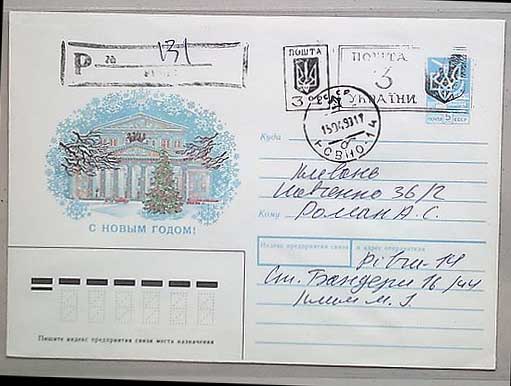 Р 20 131
ПОШТА
3
ПОШТА
3
УКРАЇНИ
ПОЧТА 5 СССР
РОВНО-14
Куда
Клевань
Шевченко 36/2
Кому Роман А. С.
С НОВЫМ ГОДОМ!
Индекс предприятия связи и адрес отправителя
Рівне-14
Ст. Бандери 16/44
Клим М. І.
Пишите индекс предприятия связи места назначения